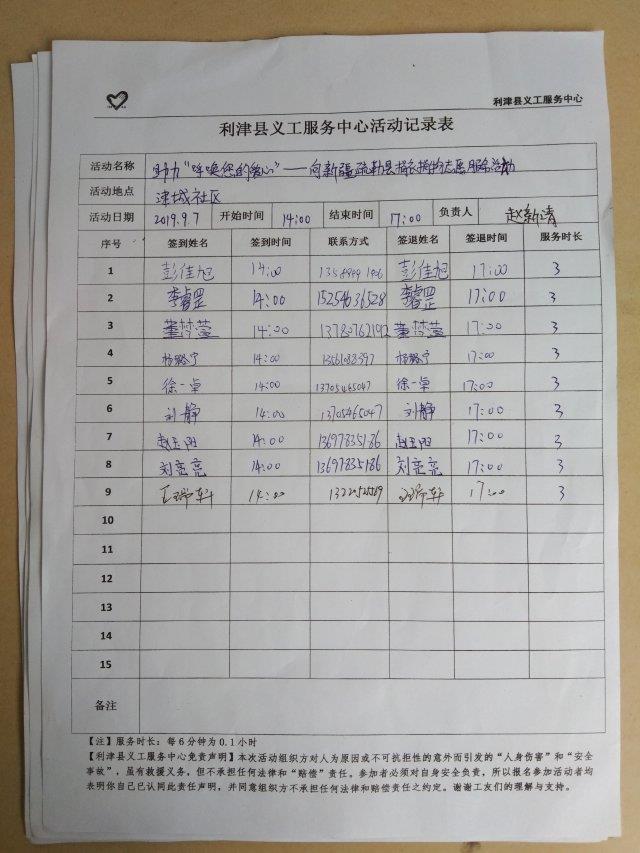 利津县义工服务中心
利津县义工服务中心活动记录表
活动名称 助力“呼唤您的爱心”——向新疆疏勒县捐衣捐物志愿服务活动
活动地点 津城社区
活动日期 2019.9.7 开始时间 14:00 结束时间 17:00 负责人 赵新清
序号 签到姓名 签到时间 联系方式 签退姓名 签退时间 服务时长
1 彭佳旭 14:00 彭佳旭 17:00 3
2 李睿罡 14:00 15254636528 李睿罡 17:00 3
3 董梦萱 14:00 13780762192 董梦萱 17:00 3
4 杨璐宁 14:00 杨璐宁 17:00 3
5 徐一卓 14:00 13705465047 徐一卓 17:00 3
6 刘静 14:00 13705465047 刘静 17:00 3
7 赵玉阳 14:00 13697835186 赵玉阳 17:00 3
8 刘亮亮 14:00 13697835186 刘亮亮 17:00 3
9 14:00 17:00 3
10
11
12
13
14
15
备注
【注】服务时长：每6分钟为0.1小时
【利津县义工服务中心免责声明】本次活动组织方对人为原因或不可抗拒性的意外而引发的“人身伤害”和“安全
事故”，虽有救援义务，但不承担任何法律和“赔偿”责任。参加者必须对自身安全负责，所以报名参加活动者均
表明你自己已认同此责任声明，并同意组织方不承担任何法律和赔偿责任之约定。谢谢工友们的理解与支持。